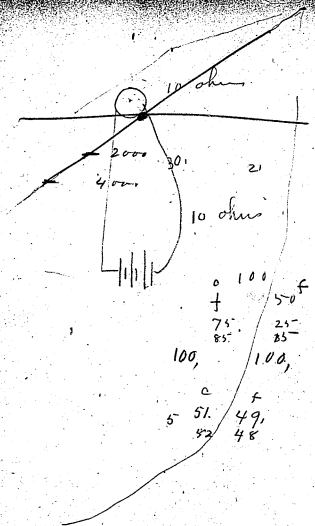 10 ohms
2000
30. 21
4000
10 ohms
0 100
f 50 f
75. 25
85. 85
100, 100,
c f
5 51. 49,
52 48